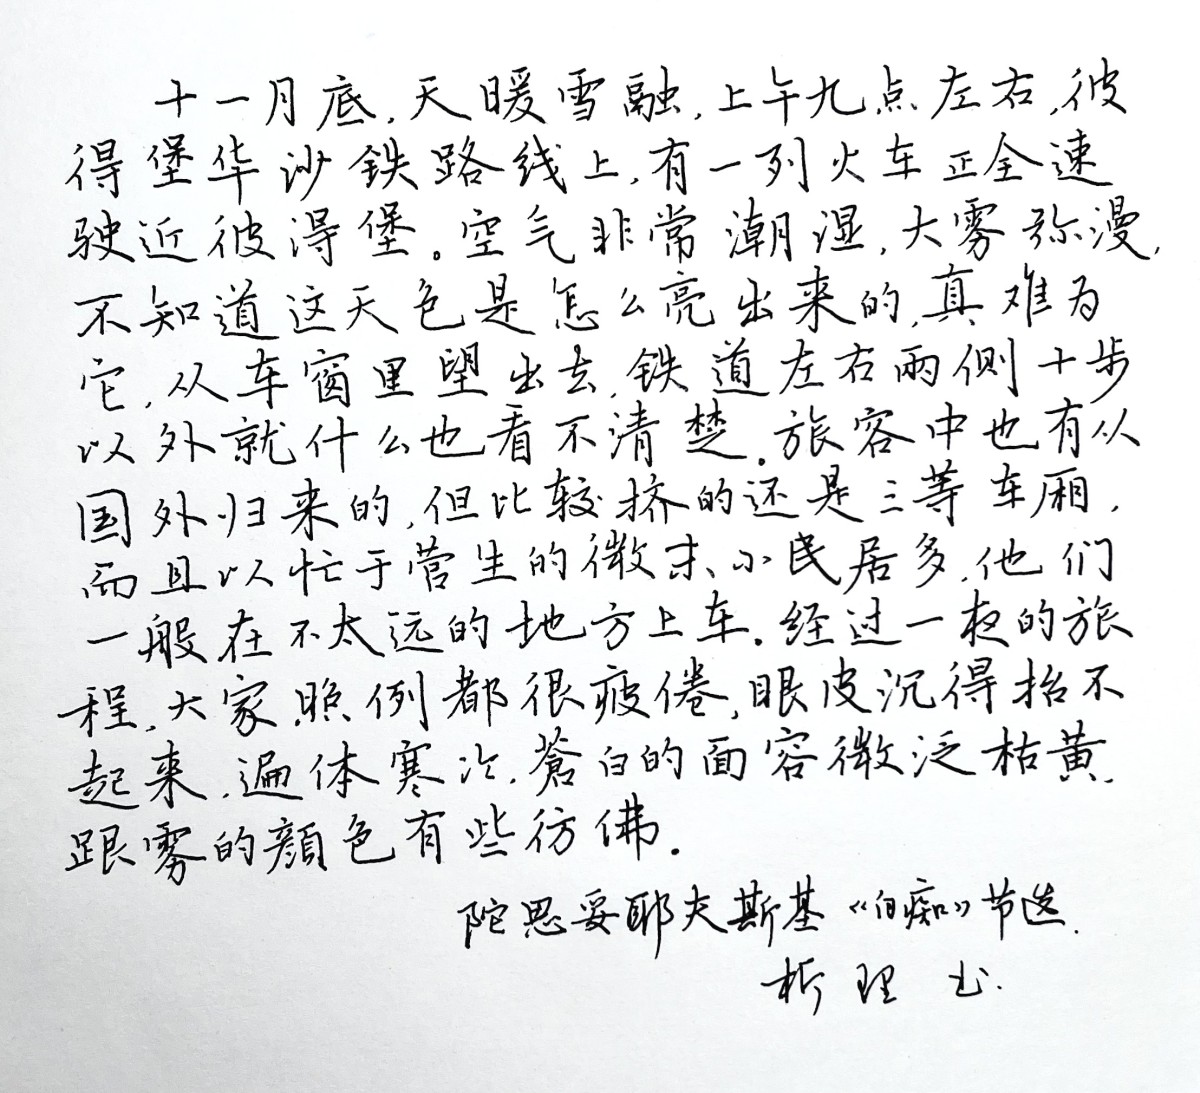 十一月底,天暖雪融,上午九点左右,彼
得堡华沙铁路线上,有一列火车正全速
驶近彼得堡。空气非常潮湿,大雾弥漫,
不知道这天色是怎么亮出来的,真难为
它,从车窗里望出去,铁道左右两侧十步
以外就什么也看不清楚。旅客中也有从
国外归来的,但比较挤的还是三等车厢,
而且以忙于营生的微末、小民居多,他们
一般在不太远的地方上车。经过一夜的旅
程,大家照例都很疲倦,眼皮沉得抬不
起来,遍体寒冷,蒼白的面容微泛枯黄,
跟雾的顔色有些彷佛。
陀思妥耶夫斯基《白痴》节选.
析理 书.